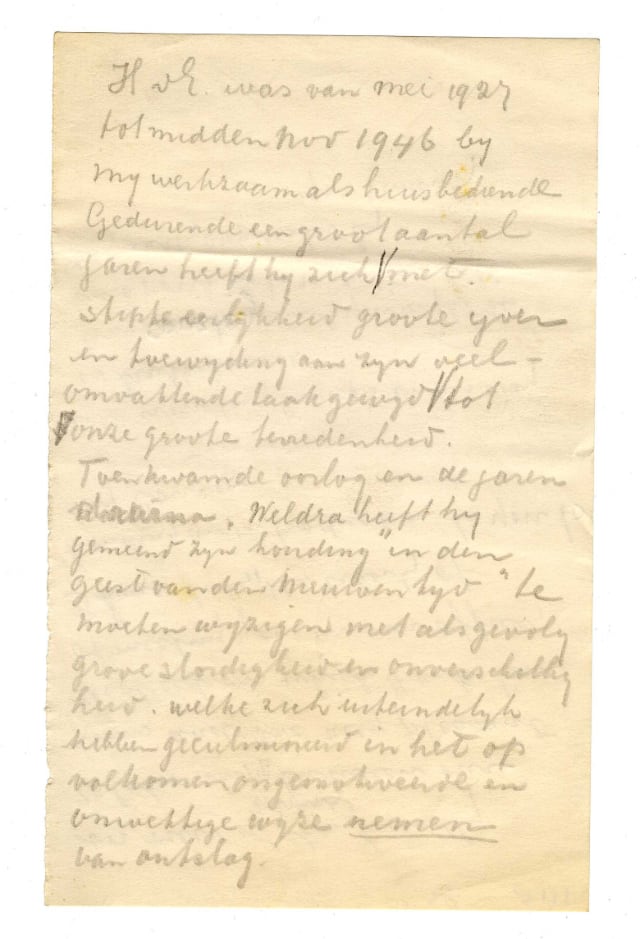 H v E. was van mei 1927
tot midden Nov 1946 by
my werkzaam als huisbediende
Gedurende een groot aantal
jaren heeft hy zich met
stipte eerlykheid groote yver
en toewyding aan zyn veel-
omvattende taak gewyd tot
onze groote tevredenheid.
Toen kwam de oorlog en de jaren
. Weldra heeft hy
gemeend zyn houding "in den
geest van den Nieuwen tyd" te
moeten wyzigen met als gevolg
grove slordigheid en onverschillig
heid. welke zich uiteindelyk
hebben geculmineerd in het op
volkomen ongemotiveerde en
onwettige wyze nemen
van ontslag.